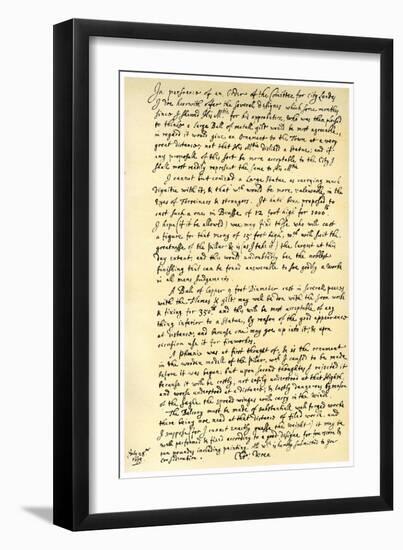 In pursuance of an Order of the Comittee for City Landes
I doe herewith offer the severall designes which some monthes
since I shewed His Mtie for his approbation, who was then pleased
to thinke a large Ball of metall gilt would be most agreeable,
in regard it would give an Ornament to the Town at a very
great distance; not that his Mtie disliked a Statue; and if
any proposall of this sort be more acceptable to the City I
shall most readily represent the same to his Mtie
I cannot but commend a Large Statue as carrying much
dignitie with it, & that wch would be more valueable in the
Eyes of Forreiners & strangers. It hath been proposed to
cast such a one in Brasse of 12 foot high for 1000lb
I hope (if it be allowed) wee may find those who will cast
a figure for that mony of 15 foot high, wch will suit the
greatnesse of the pillar & is (as I take it) the largest at this
day extant; and this would undoubtedly bee the noblest
finishing that can be found answerable to soe goodly a worke
in all mens Judgements.
A Ball of Copper 9 foot Diameter cast in severall peeces
with the Flames & gilt, may well be don with the Iron worke
& fixing for 350lb and this will be most acceptable of any
thing inferior to a Statue, by reason of the good appearance
at distance, and because one may goe up into it; & upon
occasion use it for fireworkes.
A phœnix was at first thought of, & is the ornament
in the wooden modell of the pillar, wch I caused to be made
before it was begun; but upon second thoughtes I rejected it
because it will be costly, not easily understood at that Highth,
and worse understood at a distance, & lastly dangerous by reason
of the sayle the spread winges will carry in the winde.
The Balcony must be made of substantiall well forged worke
there being noe need at that distance of filed worke, and
I suppose (for I cannot exactly guesse the weight) it may be
well performed & fixed according to a good designe for
pounds including painting. All wch is humbly submitted to your
consideration.
July 28th
1675
Chr: Wren